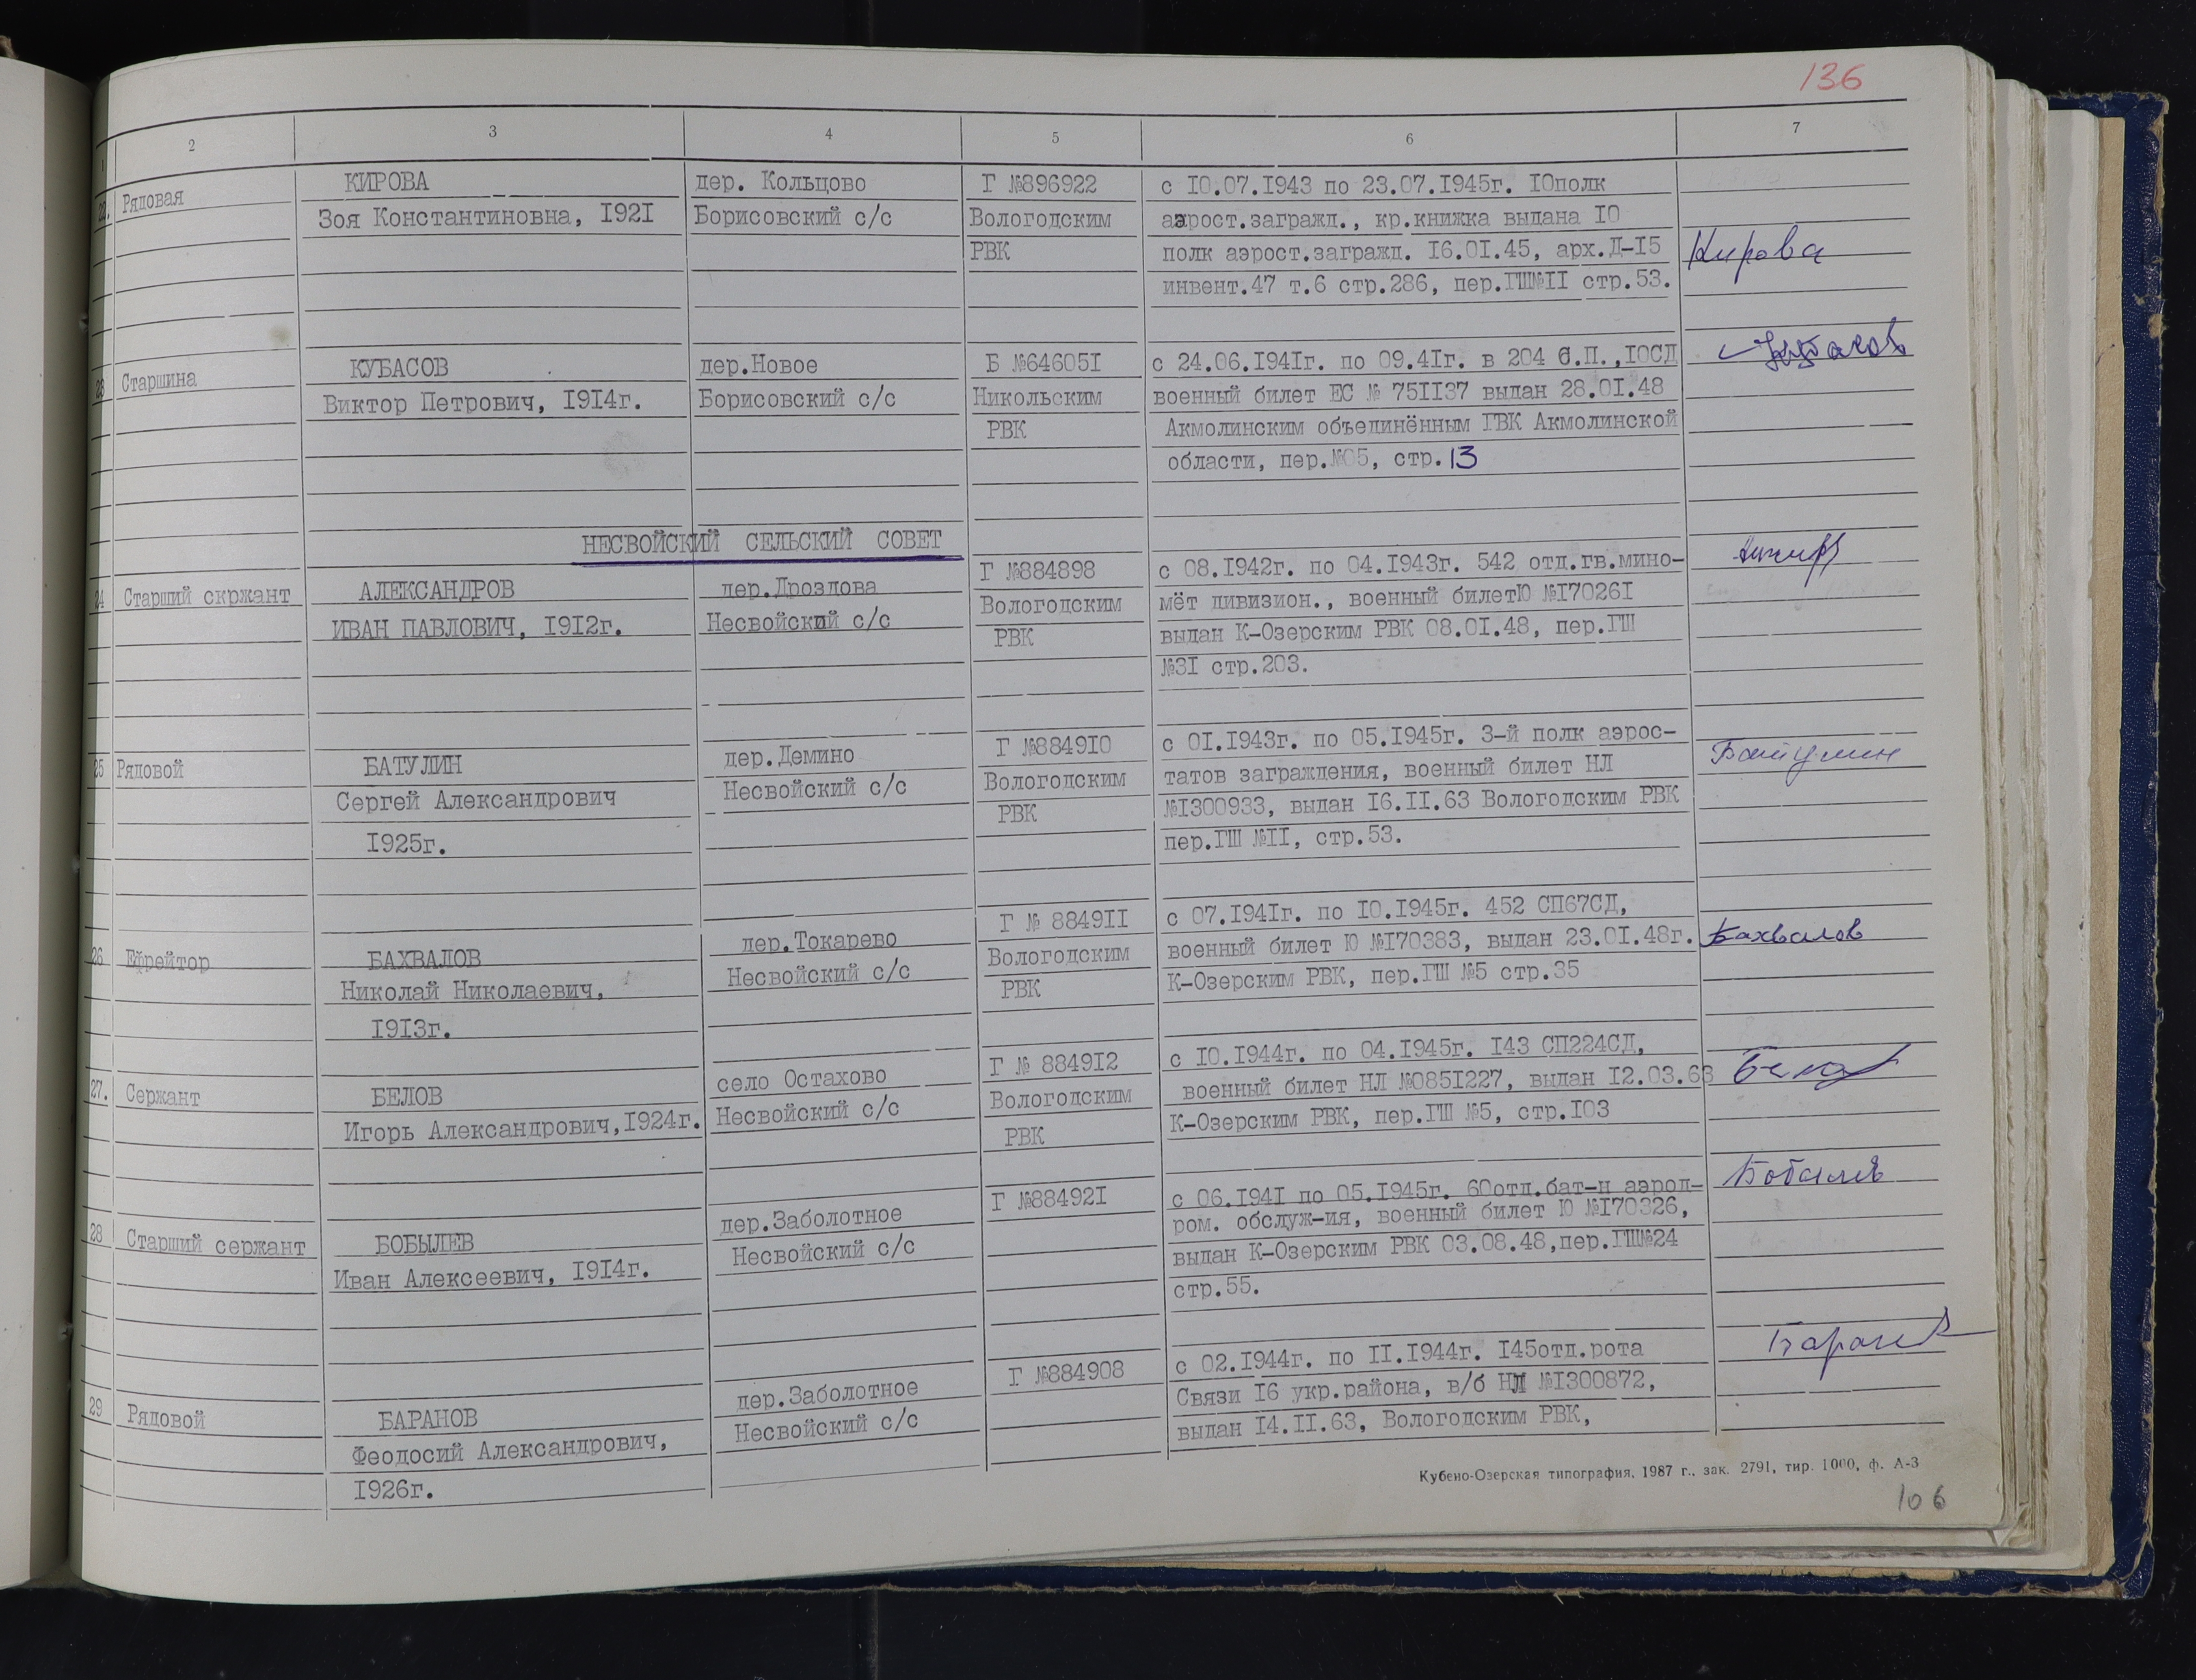 136
1 2 3 4 5 6 7
22. Рядовая
КИРОВА
Зоя Константиновна, I92I
дер. Кольцово
Борисовский с/с
Г №896922
Вологодским
РВК
с I0.07.I943 по 23.07.I945г. I0полк
аэрост.загражд., кр.книжка выдана I0
полк аэрост.загражд. I6.0I.45, арх.Д-I5
инвент.47 т.6 стр.286, пер.ГШ№II стр.53.
Кирова
23 Старшина
КУБАСОВ
Виктор Петрович, I9I4г.
дер.Новое
Борисовский с/с
Б №64605I
Никольским
РВК
с 24.06.I94Iг. по 09.4Iг. в 204 с.П.,I0СД
военный билет ЕС № 75II37 выдан 28.0I.48
Акмолинским объединённым ГВК Акмолинской
области, пер.№05, стр.13
Кубасов
НЕСВОЙСКИЙ СЕЛЬСКИЙ СОВЕТ
24 Старший скржант
АЛЕКСАНДРОВ
ИВАН ПАВЛОВИЧ, I9I2г.
дер.Дроздова
Несвойский с/с
Г №884898
Вологодским
РВК
с 08.I942г. по 04.I943г. 542 отд.гв.мино-
мёт дивизион., военный билетЮ №I7026I
выдан К-Озерским РВК 08.0I.48, пер.ГШ
№3I стр.203.
25 Рядовой
БАТУЛИН
Сергей Александрович
I925г.
дер.Демино
Несвойский с/с
Г №8849I0
Вологодским
РВК
с 0I.I943г. по 05.I945г. 3-й полк аэрос-
татов заграждения, военный билет НЛ
№I300933, выдан I6.II.63 Вологодским РВК
пер.ГШ №II, стр.53.
Батулин
26 Ефрейтор
БАХВАЛОВ
Николай Николаевич,
I9I3г.
дер.Токарево
Несвойский с/с
Г № 8849II
Вологодским
РВК
с 07.I94Iг. по I0.I945г. 452 СП67СД,
военный билет Ю №I70383, выдан 23.0I.48г.
К-Озерским РВК, пер.ГШ №5 стр.35
Бахвалов
27. Сержант
БЕЛОВ
Игорь Александрович,I924г.
село Остахово
Несвойский с/с
Г № 8849I2
Вологодским
РВК
с I0.I944г. по 04.I945г. I43 СП224СД,
военный билет НЛ №085I227, выдан I2.03.63
К-Озерским РВК, пер.ГШ №5, стр.I03
Белов
28 Старший сержант
БОБЫЛЕВ
Иван Алексеевич, I9I4г.
дер.Заболотное
Несвойский с/с
Г №88492I
с 06.I94I по 05.I945г. 60отд.бат-н аэрод-
ром. обслуж-ия, военный билет Ю №I70326,
выдан К-Озерским РВК 03.08.48,пер.ГШ№24
стр.55.
Бобылев
29 Рядовой
БАРАНОВ
Феодосий Александрович,
I926г.
дер.Заболотное
Несвойский с/с
Г №884908
с 02.I944г. по II.I944г. I45отд.рота
Связи I6 укр.района, в/б НЛ №I300872,
выдан I4.II.63, Вологодским РВК,
Баранов
Кубено-Озерская типография, 1987 г., зак. 2791, тир. 1000, ф. А-3
106